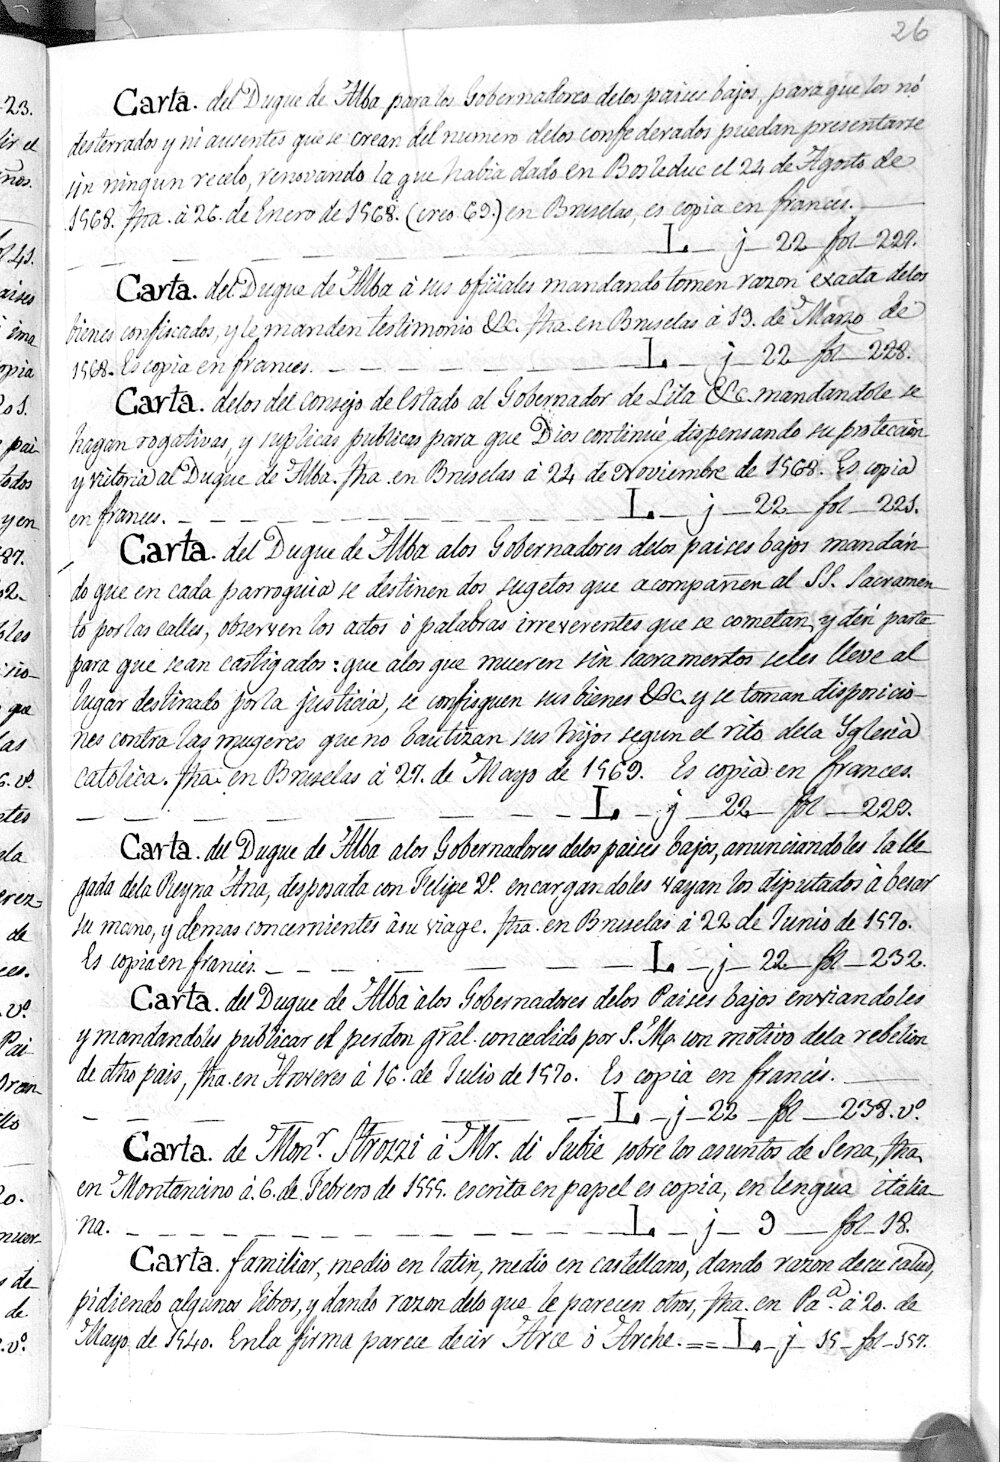 26
Carta. del Duque de Alba para los Gobernadores delos paises bajos, para que los nó
desterrados y ni ausentes que se crean del numero delos confederados puedan presentarse
sin ningun recelo, renovando la que habia dado en Bosleduc el 24 de Agosto de
1568. fha. à 26. de Enero de 1568. (creo 69.) en Bruselas, es copia en frances.
L j 22 fol 227.
Carta. del Duque de Alba à sus oficiales mandando tomen razon exacta delos
bienes confiscados, y le manden testimonio &c. fha. en Bruselas à 19. de Marzo de
1568. Es copia en frances. L j 22 fol 228.
Carta. delos del Consejo de Estado al Gobernador de Lila &c. mandandole se
hagan rogativas, y suplicas publicas para que Dios continue, dispensando su proteccion
y victoria al Duque de Alba. fha. en Bruselas à 24 de Noviembre de 1568. Es copia
en frances. L j 22 fol 221.
Carta. del Duque de Alba alos Gobernadores delos paises bajos mandán-
do que en cada parroquia se destinen dos sugetos que acompañen al SS. Sacramen-
to por las calles, observen los actos ò palabras irreverentes que se cometan, y dén parte
para que sean castigados: que alos que mueren sin sacramentos seles lleve al
lugar destinado por la justicia, se confisquen sus bienes &c. y se toman disposicio-
nes contra las mugeres que no bautizan sus hijos segun el rito dela Yglesia
catolica. fha. en Bruselas à 27. de Mayo de 1569. Es copia en frances.
L j 22 fol 229.
Carta. del Duque de Alba alos Gobernadores delos paises bajos, anunciandoles la lle-
gada dela Reyna Ana, desposada con Felipe 2º. encargandoles vayan los diputados à besar
su mano, y demas concernientes à su viage. fha. en Bruselas à 22 de Junio de 1570.
Es copia en francés. L j 22 fol 232.
Carta. del Duque de Alba àlos Gobernadores delos Paises bajos enviandoles
y mandandoles publicar el perdon gral. concedido por S. M. con motivo dela rebelion
de dho pais, fha. en Anveres à 16. de Julio de 1570. Es copia en francés.
L j 22 fol 238. vº.
Carta. de Monr. Strozzi à Mr. di Subie sobre los asuntos de Sena, fha.
en Montancino à 6. de Febrero de 1555. escrita en papel es copia, en lengua italia-
na. L j 9 fol 18.
Carta. familiar, medio en latin, medio en castellano, dando razon de su salud,
pidiendo algunos libros, y dando razon delo que le parecen otros, fha. en Paª. à 20. de
Mayo de 1540. En la firma parece decir Arce ò Arche. == L. j 15 fol 157.